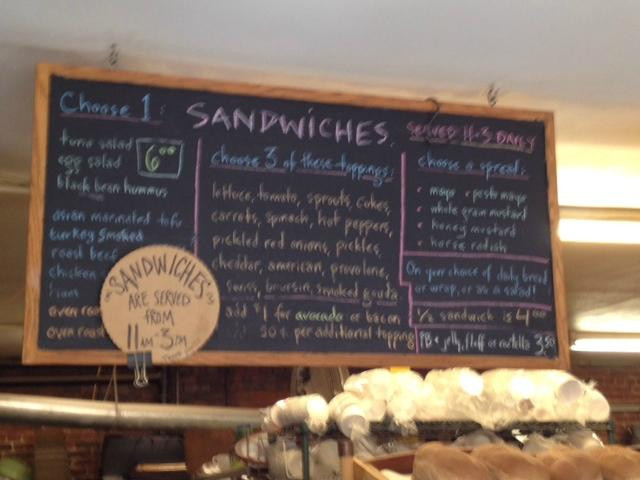 Choose 1:
tuna salad
egg salad
6.00
black bean hummus
asian marinated tofu
turkey smoked
roast beef
chicken
ham
oven roas
oven roast
SANDWICHES
ARE SERVED
FROM
11AM-3PM
SANDWICHES
choose 3 of these toppings:
lettuce, tomato, sprouts, cukes,
carrots, spinach, hot peppers,
pickled red onions, pickles,
cheddar, american, provolone,
swiss, boursin, smoked gouda
add $1 for avocado or bacon
50¢ per additional topping
SERVED 11-3 DAILY
choose a spread:
• mayo • pesto mayo
• whole grain mustard
• honey mustard
• horse radish
On your choice of daily bread
or wrap, or as a salad!
1/2 sandwich is 4.00
PB + jelly, fluff or nutella 3.50